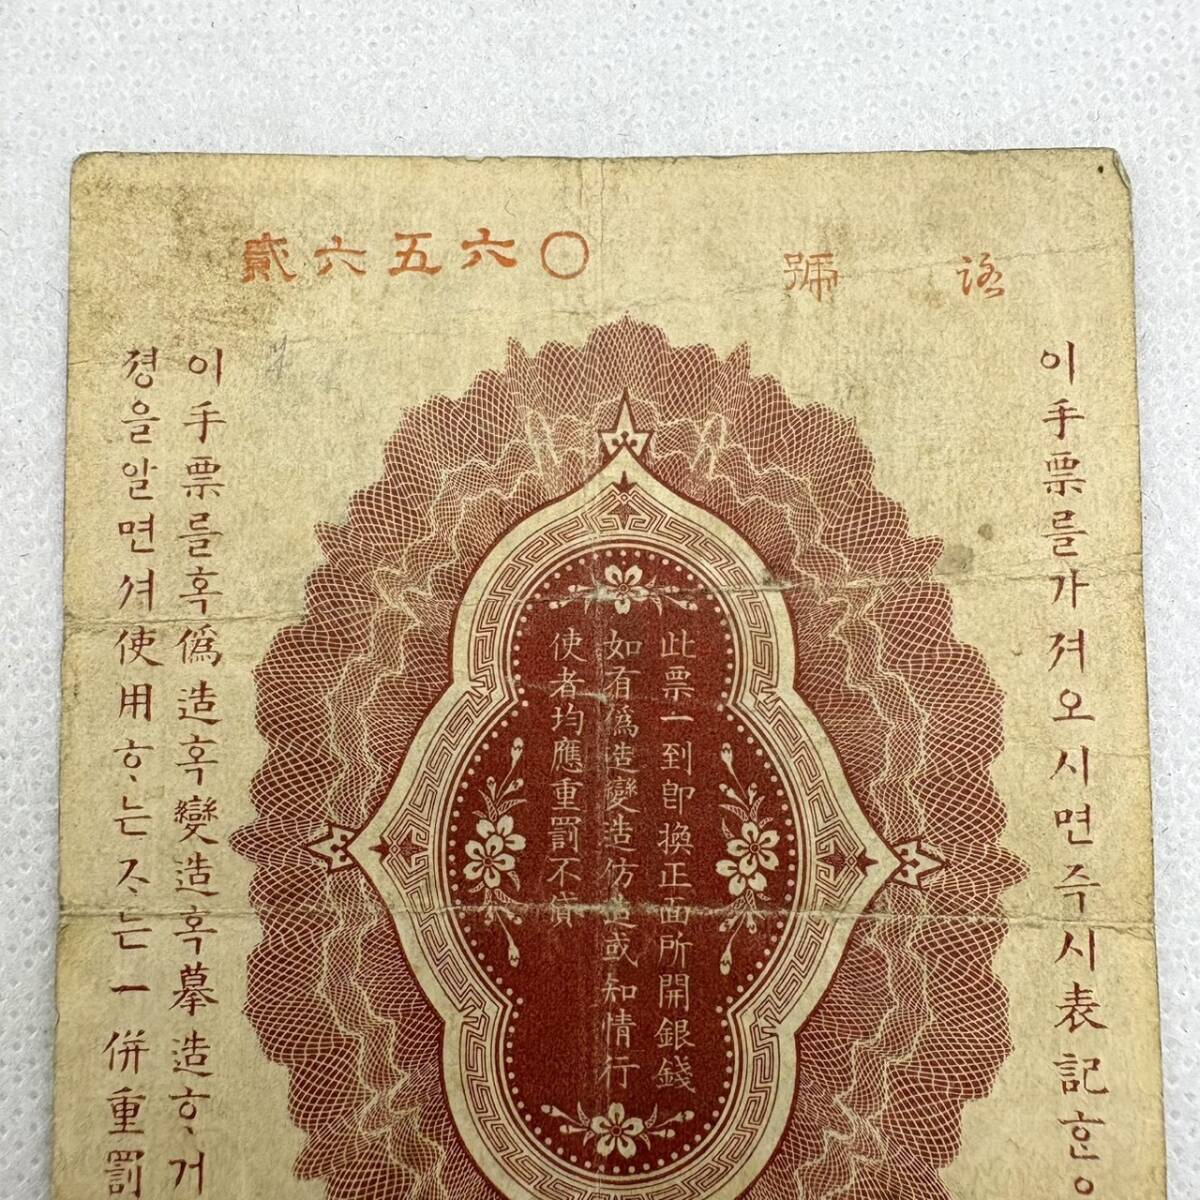 貳六五六〇
號
이手票를가져오시면주시表記ᄒᆞᆫ
此票一到卽換正面所開銀錢
如有僞造變造仿造或知情行
使者均應重罰不貸
이手票를혹僞造혹變造혹摹造ᄒᆞ거
경을알면셔使用ᄒᆞ는ᄌᆞ는一併重罰